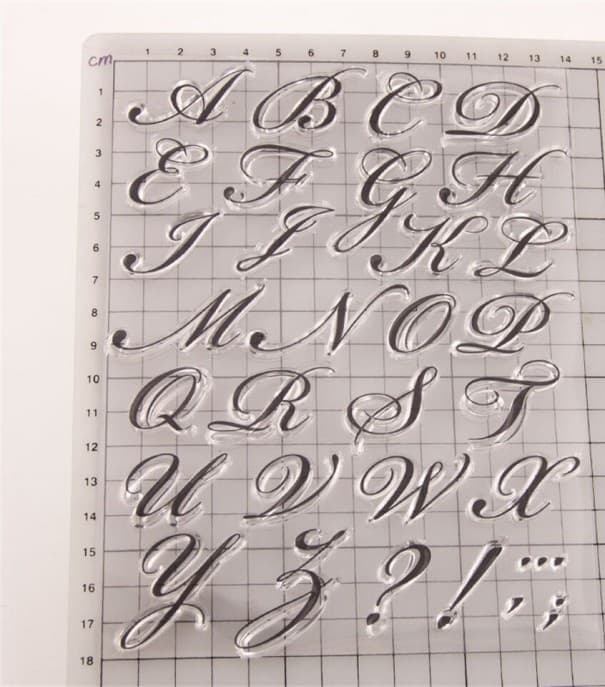 cm 1 2 3 4 5 6 7 8 9 10 11 12 13 14 15
1
A B C D
2
3
E F G H
4
5
I J K L
6
7
8
M N O P
9
10
Q R S T
11
12
13
U V W X
14
15
Y Z ? ! ... , ;
16
17
18